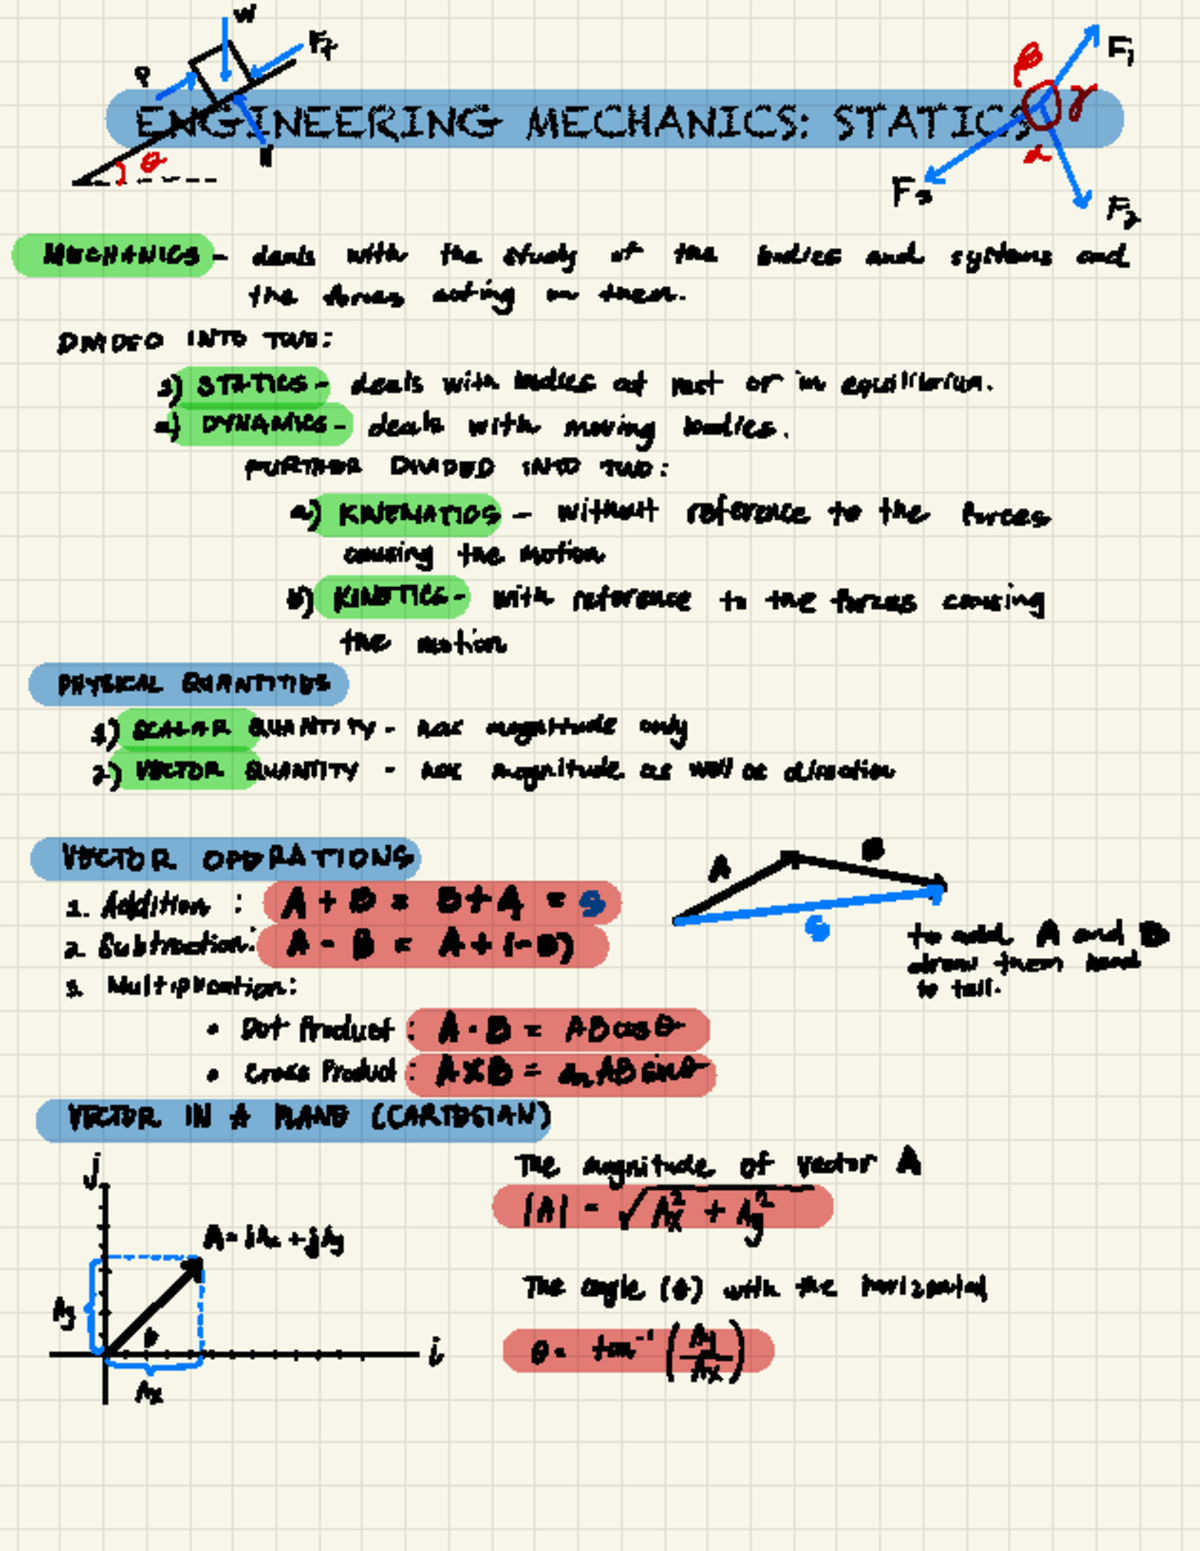 W
P
θ
N
β
F₁
γ
α
F₃
F₂
ENGINEERING MECHANICS: STATICS
MECHANICS - deals with the study of the bodies and systems and
the forces acting on them.
DIVIDED INTO TWO:
1) STATICS - deals with bodies at rest or in equilibrium.
2) DYNAMICS - deals with moving bodies.
FURTHER DIVIDED INTO TWO:
a) KINEMATICS - without reference to the forces
causing the motion
b) KINETICS - with reference to the forces causing
the motion
PHYSICAL QUANTITIES
1) SCALAR QUANTITY - has magnitude only
2) VECTOR QUANTITY - has magnitude as well as direction
VECTOR OPERATIONS
1. Addition : A + B = B + A = S
2. Subtraction: A - B = A + (-B)
3. Multiplication:
• Dot Product : A · B = AB cos θ
• Cross Product : A X B = aₙ AB sin θ
A
B
S
to add A and B
draw them head
to tail.
VECTOR IN A PLANE (CARTESIAN)
j
A = iAx + jAy
Ay
θ
i
Ax
The magnitude of vector A
|A| = √Ax² + Ay²
The angle (θ) with the horizontal
θ = tan⁻¹ (Ay/Ax)